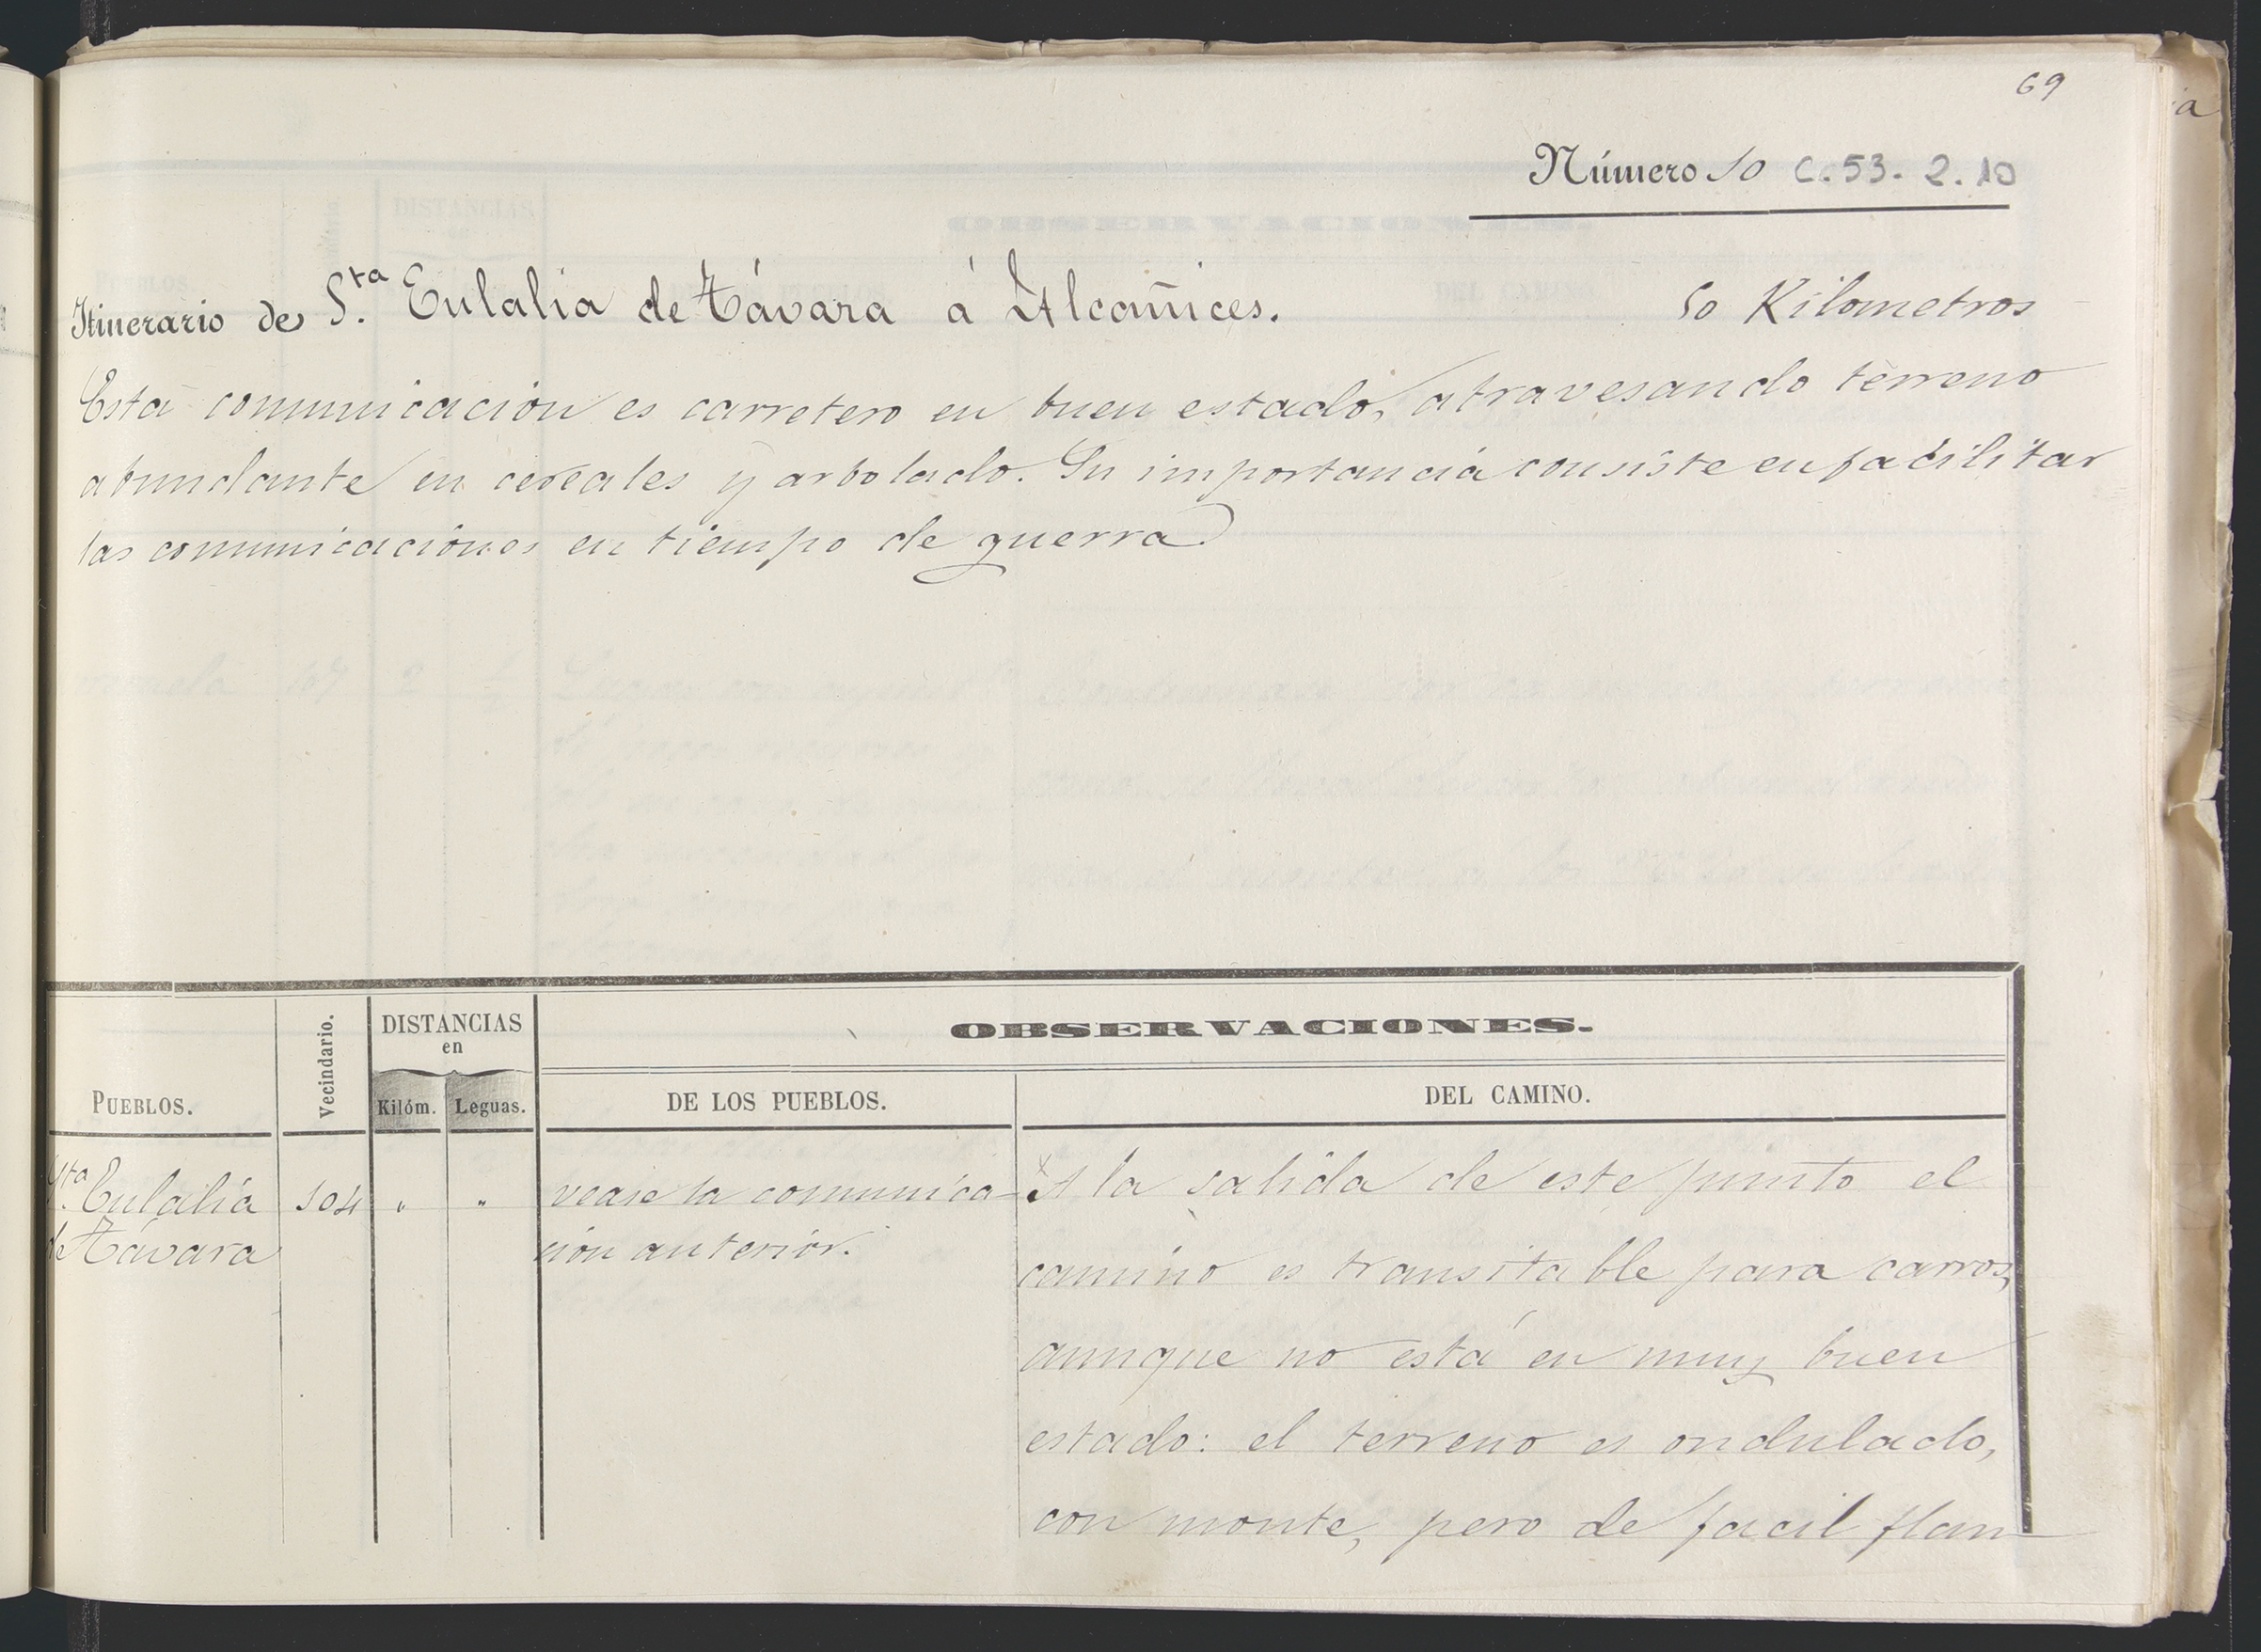 69
Número 10 C.53. 2.10
Itinerario de Sta. Eulalia de Távara á Alcañices. 50 Kilometros
Esta comunicación es carretero en buen estado, atravesando terreno
abundante en cereales y arbolado. Su importancia consiste en facilitar
las comunicaciones en tiempo de guerra.
OBSERVACIONES.
DISTANCIAS
en
PUEBLOS. Vecindario. Kilóm. Leguas. DE LOS PUEBLOS. DEL CAMINO.
Sta. Eulalia 104 " " vease la comunica- A la salida de este punto el
de Távara ción anterior. camino es transitable para carros,
aunque no está en muy buen
estado: el terreno es ondulado,
con monte, pero de facil flan-